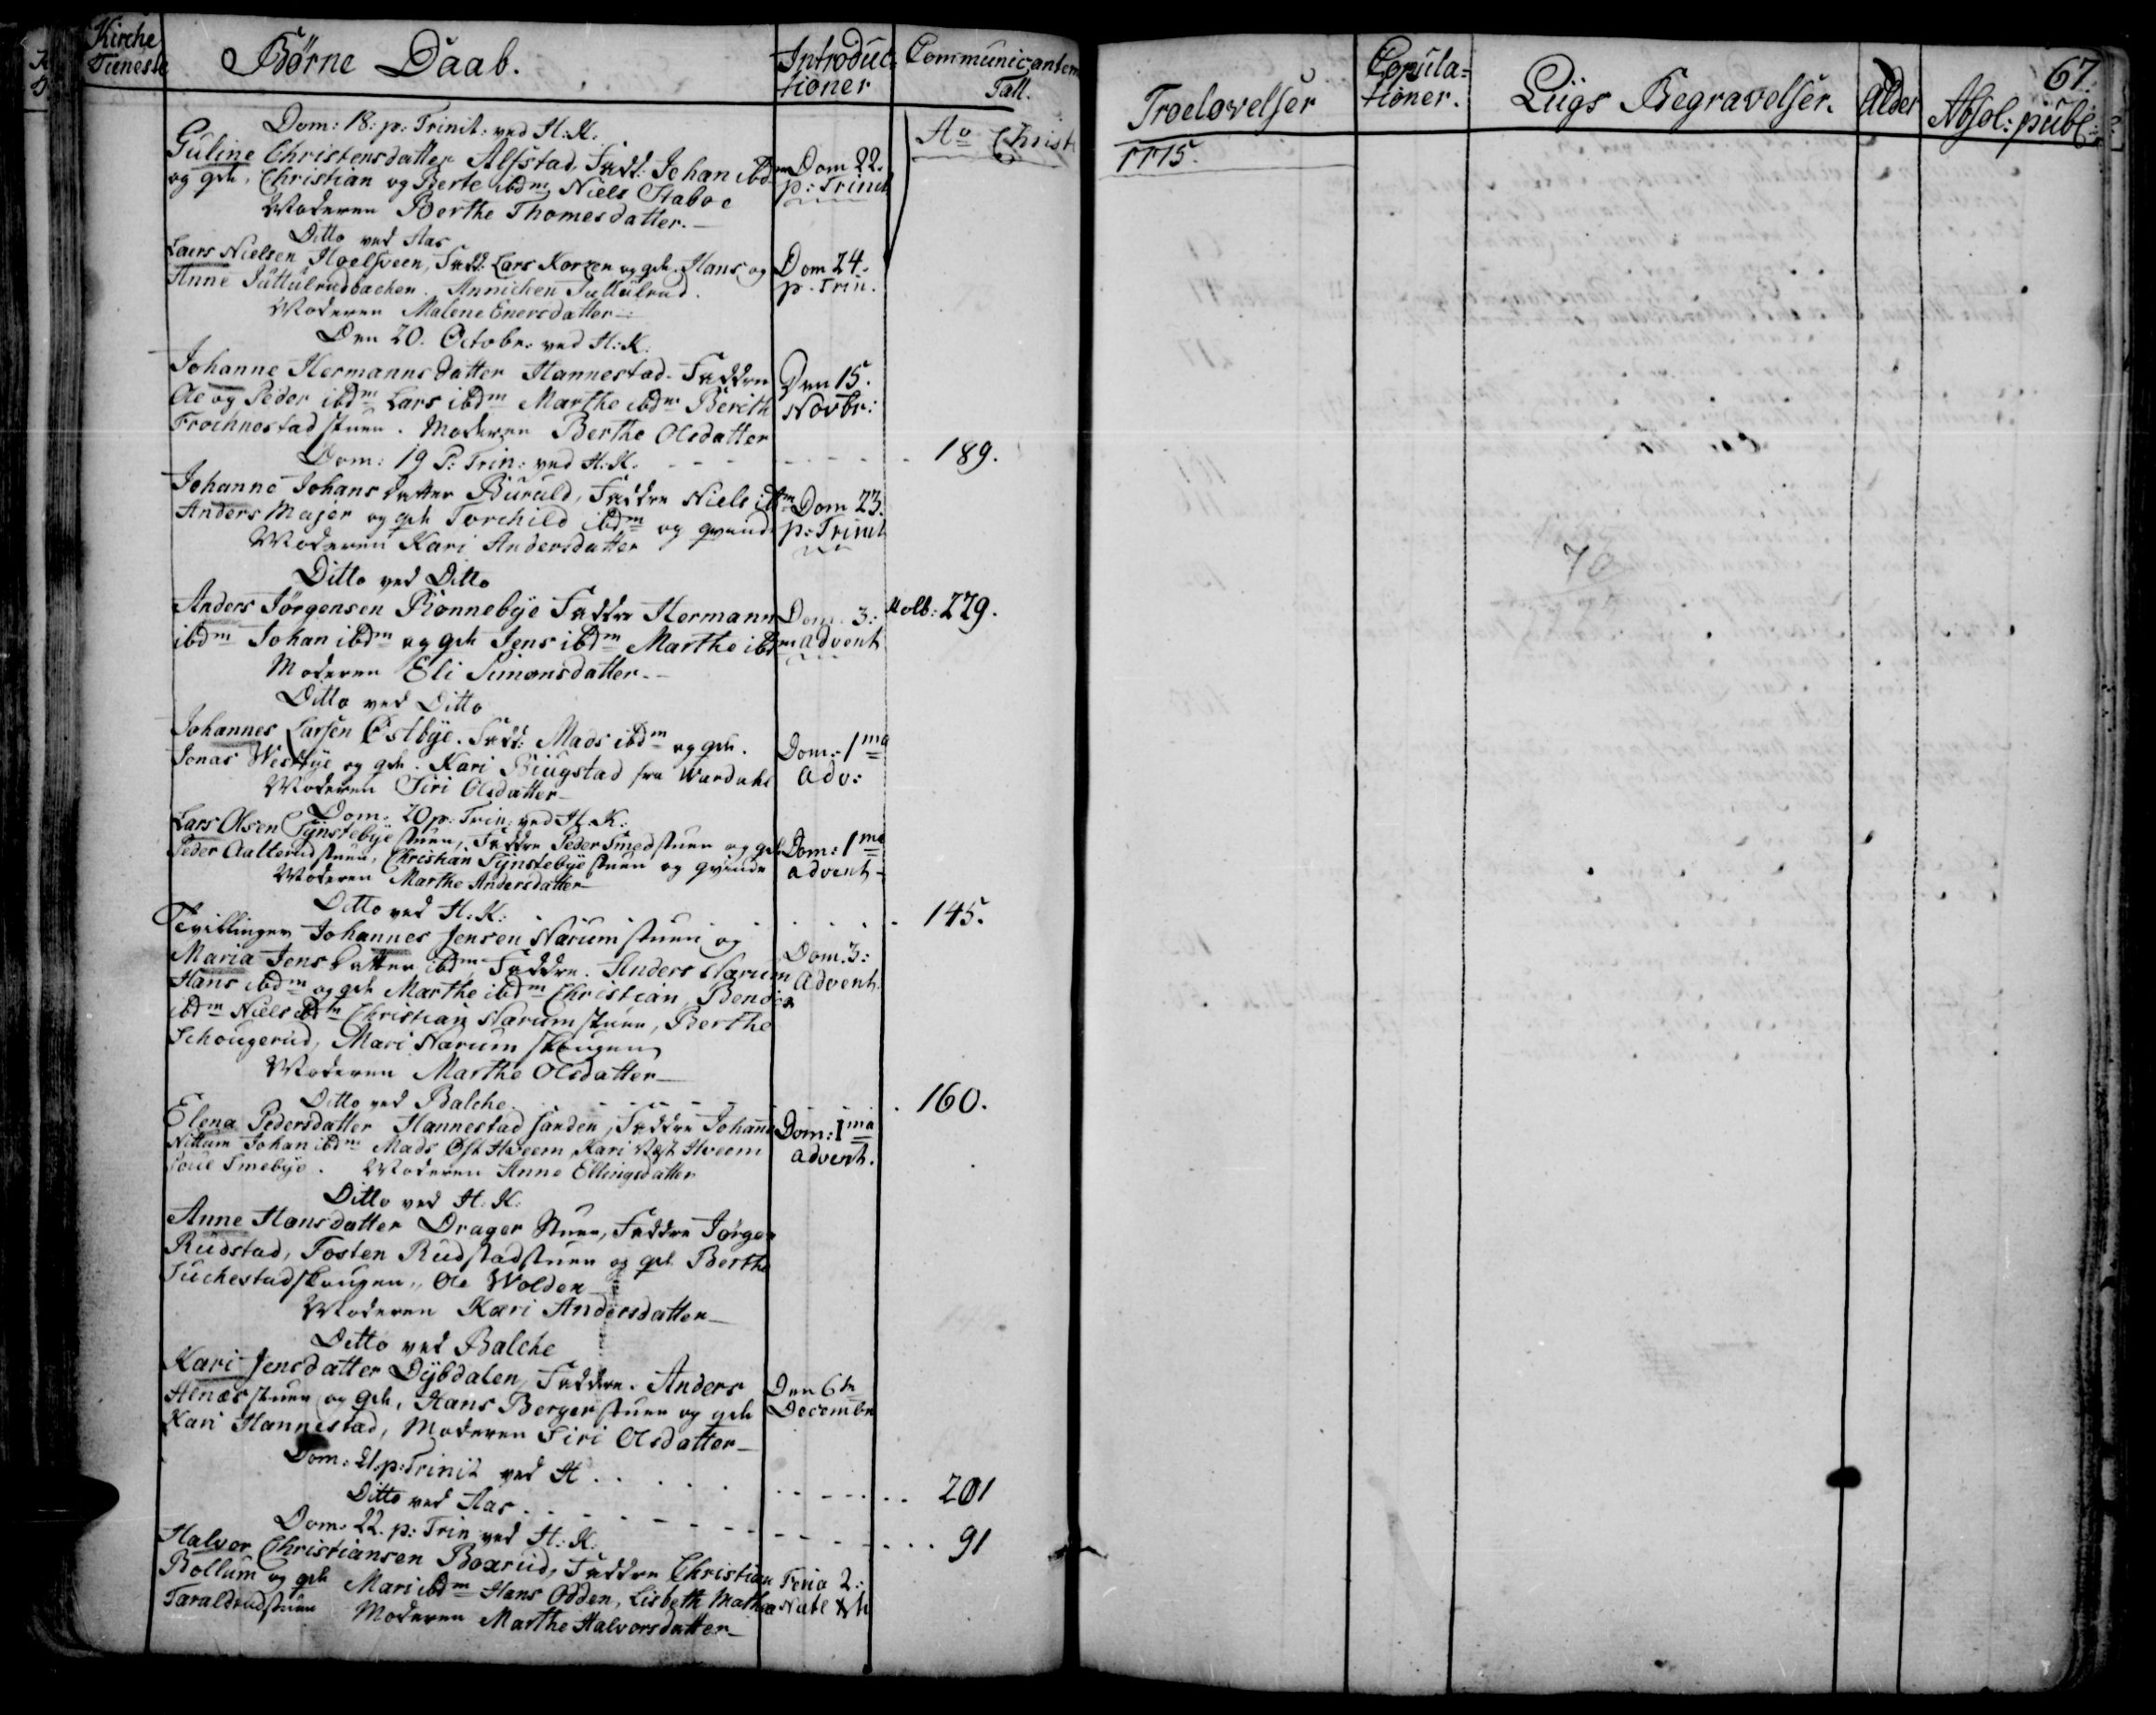 Kirche
Tieneste
Børne Daab.
Introduc-
tioner
Communicantern
Tall.
Troelovelser
Copula-
tioner.
Liigs Begravelser.
Alder
67.
Absol: publ:
Ao Christi
1775.
Dom: 18: p: Trinit: ved H: K.
Guline Christensdatter Alfstad, Fadd: Johan ibdm
og qde, Christian og Berte ibdm Niels Staboe
Moderen Berthe Thomesdatter.
Dom 22.
p: Trinit
Ditto ved Aas
Laers Nielsen Hoelsveen, Fadd: Lars Korzen og qde. Hans og
Anne Juttulrudbachen. Annichen Juttulrud.
Moderen Malene Enersdatter
Dom 24.
p. Trin.
Den 20. Octobr: ved H: K:
Johanne Hermannsdatter Hannestad. Faddre
Ole og Peder ibdm Lars ibdm Marthe ibdm Berith
Frochnestad stuen. Moderen Berthe Olsdatter
Den 15.
Novbr:
Dom: 19 P: Trin: ved H: K. 189.
Johanne Johansdatter Buruld, Faddre Niels ibdm
Anders Majer og qde Torchild ibdm og qvinde
Moderen Kari Andersdatter
Dom 23.
p: Trinit
Ditto ved Ditto
Anders Jørgensen Rønnebye Faddre Hermann
ibdm Johan ibdm og qde Jens ibdm Marthe ibdm
Moderen Eli Simonsdatter.
Dom. 3:
advent
Molb: 229.
Ditto ved Ditto
Johannes Larsen Østbye. Fadd: Mads ibdm og qde.
Jonas Westbye og qde. Kari Biugstad fra Wardahl
Moderen Siri Olsdatter
Dom: 1ma
adv:
Dom. 20 p: Trin: ved H: K:
Lars Olsen Tynstebye stuen, Faddre Peder Smedstuen og qde
Peder Aalterudstuen, Christian Tynstebye stuen og qvinde
Moderen Marthe Andersdatter
Dom: 1ma
advent
Ditto ved H: K: 145.
Tvillinger Johannes Jensen Narumstuen og
Maria Jensdatter ibdm Faddre. Anders Narum
Hans ibdm og qde Marthe ibdm Christian, Bendix
ibdm Niels ibdm Christian Narumstuen, Berthe
Schougerud, Mari Narum skougen
Moderen Marthe Olsdatter
Dom. 3:
Advent.
Ditto ved Balche 160.
Elena Pedersdatter Hannestad sanden, Faddre Johannes
Nittum Johan ibdm Mads Øst Hveem Kari Vest Hveem
Smebye. Moderen Anne Ellingsdatter
Dom: 1ma
advent.
Ditto ved H. K:
Anne Hansdatter Drager stuen, Faddre Jørgen
Rudstad, Tosten Rudstadstuen og qde Berthe
Suchestadskougen, Ole Wolden
Moderen Kari Andersdatter
Ditto ved Balche
Kari Jensdatter Dybdalen, Faddre. Anders
Alnæsstuen og qde, Hans Bergerstuen og qde
Kari Hannestad, Moderen Siri Olsdatter
Den 6te
Decembr
Dom: 21. p: Trinit ved H 201
Ditto ved Aas 91
Dom: 22. p: Trin ved H: K.
Halvor Christiansen Boxrud, Faddre Christian
Bollum og qde Mari ibdm Hans Odden, Lisbeth Mathea
Taraldrudstuen Moderen Marthe Halvorsdatter
Feria 2:
Natl Xti